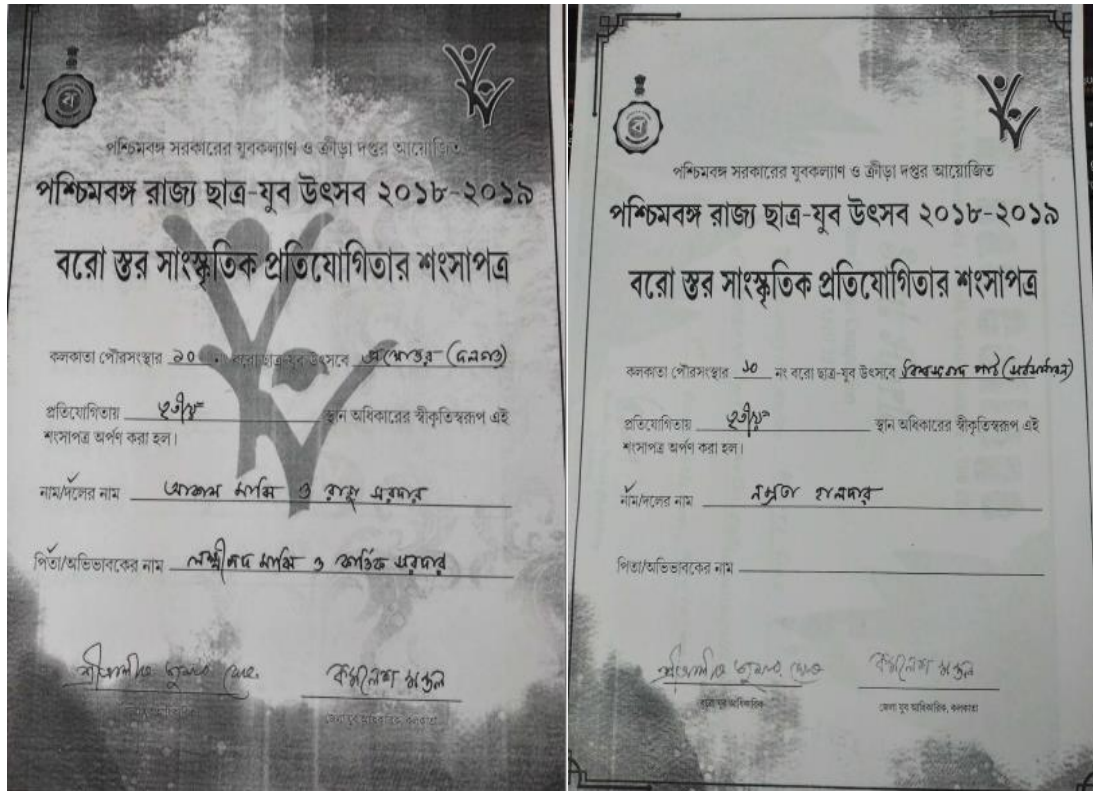 পশ্চিমবঙ্গ সরকারের যুবকল্যাণ ও ক্রীড়া দপ্তর আয়োজিত
পশ্চিমবঙ্গ রাজ্য ছাত্র-যুব উৎসব ২০১৮-২০১৯
বরো স্তর সাংস্কৃতিক প্রতিযোগিতার শংসাপত্র
কলকাতা পৌরসংস্থার ১০ নং বরো ছাত্র-যুব উৎসবে প্রশ্নোত্তর (দলগত)
প্রতিযোগিতায় তৃতীয় স্থান অধিকারের স্বীকৃতিস্বরূপ এই
শংসাপত্র অর্পণ করা হল।
নাম/দলের নাম আকাশ মাঝি ও রাহুল সরদার
পিতা/অভিভাবকের নাম লক্ষ্মীপদ মাঝি ও কার্তিক সরদার
কমলেশ মণ্ডল
জেলা যুব আধিকারিক, কলকাতা
পশ্চিমবঙ্গ সরকারের যুবকল্যাণ ও ক্রীড়া দপ্তর আয়োজিত
পশ্চিমবঙ্গ রাজ্য ছাত্র-যুব উৎসব ২০১৮-২০১৯
বরো স্তর সাংস্কৃতিক প্রতিযোগিতার শংসাপত্র
কলকাতা পৌরসংস্থার ১০ নং বরো ছাত্র-যুব উৎসবে
প্রতিযোগিতায় তৃতীয় স্থান অধিকারের স্বীকৃতিস্বরূপ এই
শংসাপত্র অর্পণ করা হল।
নাম/দলের নাম নম্রতা হালদার
পিতা/অভিভাবকের নাম
কমলেশ মণ্ডল
বরো যুব আধিকারিক
জেলা যুব আধিকারিক, কলকাতা